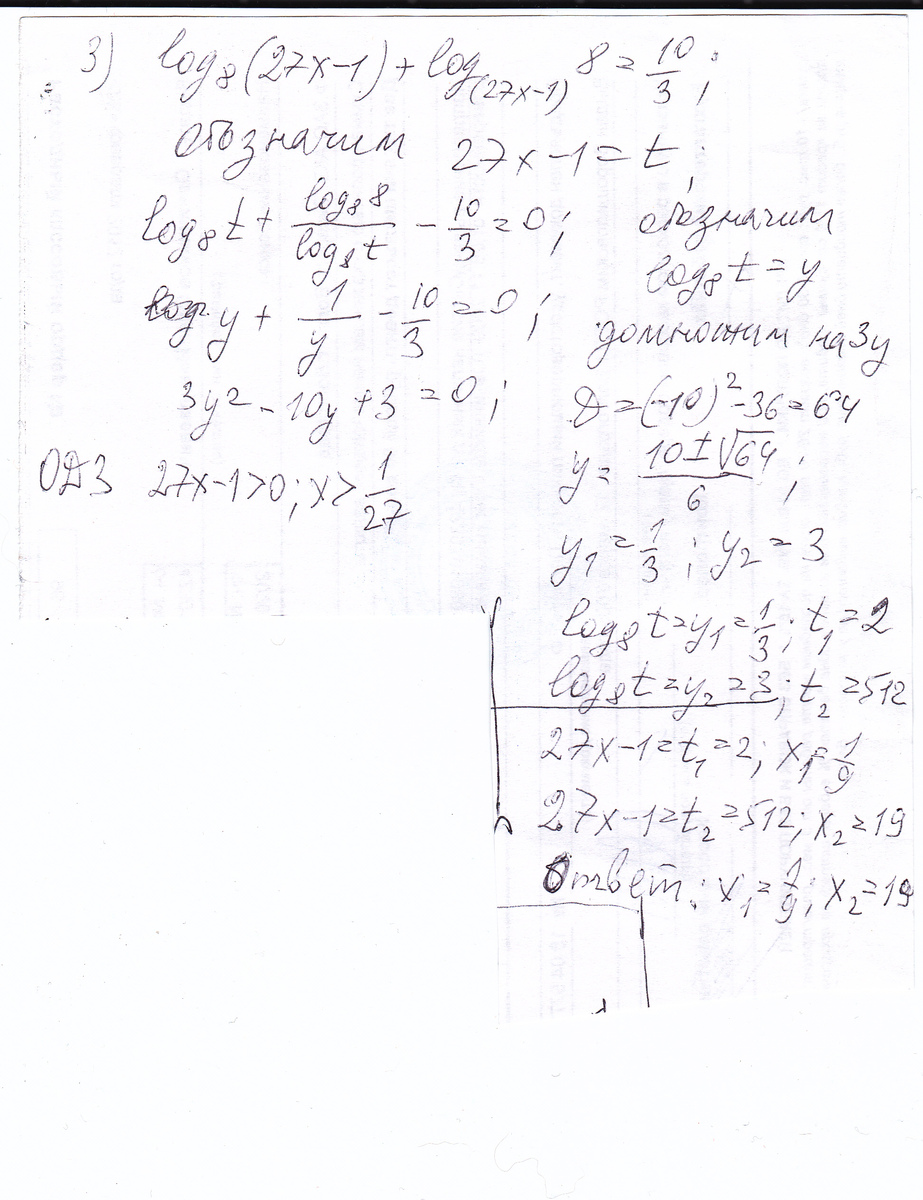 3) log₈(27x-1) + log₍₂₇ₓ₋₁₎ 8 = 10/3;
обозначим 27x-1 = t;
log₈t + log₈8/log₈t - 10/3 = 0; обозначим
log₈t = y
y + 1/y - 10/3 = 0; домножим на 3y
3y² - 10y + 3 = 0; D = (-10)² - 36 = 64
ОДЗ 27x-1>0; x > 1/27
y = (10 ± √64)/6;
y₁ = 1/3; y₂ = 3
log₈t = y₁ = 1/3; t₁ = 2
log₈t = y₂ = 3; t₂ = 512
27x-1 = t₁ = 2; x₁ = 1/9
27x-1 = t₂ = 512; x₂ = 19
Ответ: x₁ = 1/9; x₂ = 19